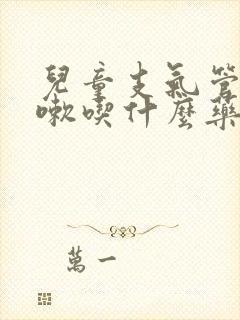 兒童支氣管
嗽喫什麼藥
萬一